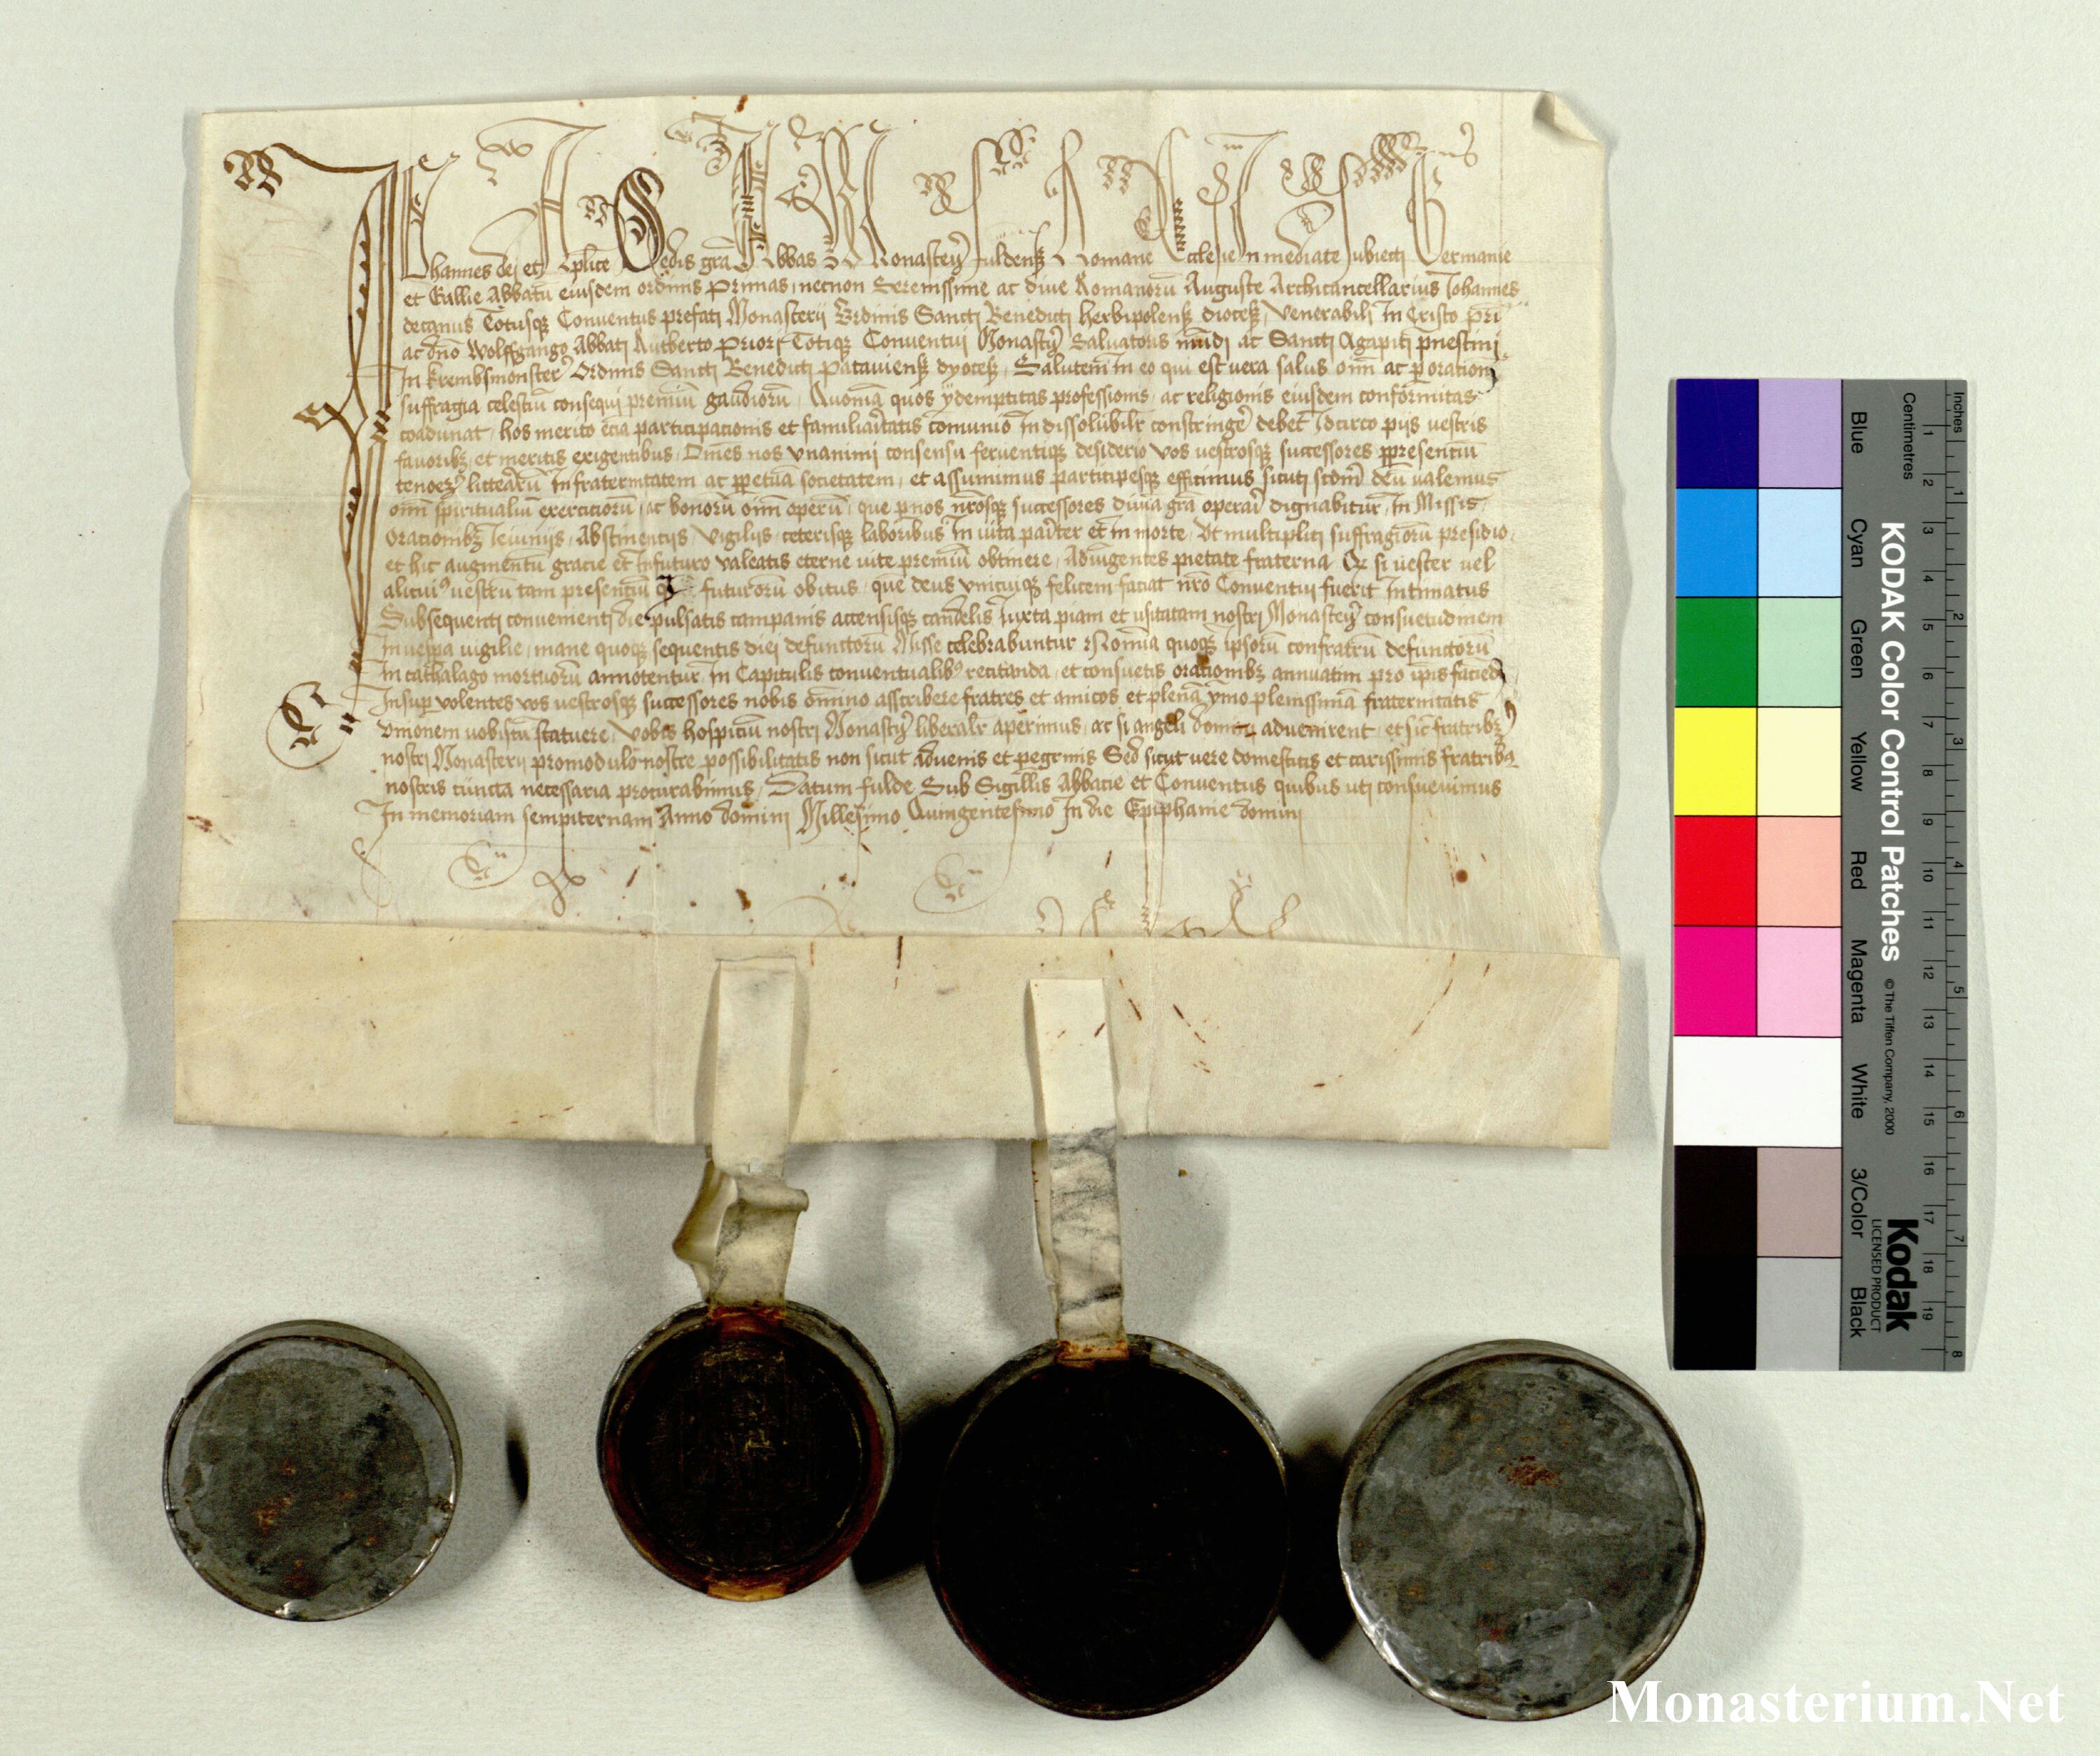 Johannes dei et Aplice Sedis gra Abbas Monastery fuldensz Romane Ecclesie In mediate subiecti Germanie
et Gallie Abbatū eiusdem ordinis Primas, necnon Serenissime ac diue Romanorū Auguste Archicancellarius Johannes
decanus Totusqz Conventus prefati Monasterij Ordinis Sancti Benedicti herbipolensz dioces, Venerabili In Cristo pri
ac dno Wolfgango Abbati Priori Totiqz Conventui Monastery Salvatoris mudi ac Sancti Agapiti pnestini
In krembsmonster Ordinis Sancti Benedicti patauiensz dyoces, Salutem In eo qui est vera salus oim ac p oration
suffragia celestiu consequi premiu gaudiorū, Quoniā quos ydemptitas professionis, ac religionis eiusdem conformitas
coadunat, hos merito ecia participacionis et familiaritatis comunio In dissolubilr constringe debet Idcirco pijs vestris
favoribz, et meritis exigentibus, Omes nos vnanimi consensu ferventiqz desiderio vos vestrosqz successores presentiu
tenore litterarū In fraternitatem ac ppetuā societatem, et assumimus participesqz efficimus sicuti scdm deū valemus
oim spiritualiū exercitiorū, ac bonorū oim operū, que p nos nrosqz successores diuia gra operari dignabitur, In Missis,
Orationibz Ieiunijs, Abstinentijs, vigilijs, ceterisqz laboribus In vita pariter et In morte, Vt multiplici suffragiorū presidio,
et hic augmentū gracie et Infuturo valeatis eterne vite premiū obtinere, Adiungentes pietate fraterna Qz si vester vel
alicui9 vestrū tam presentiū futurorū obitus, que deus vnicuiqz felicem faciat nro Conventui fuerit Intimatus
Subsequenti convenienti die pulsatis campanis accensisqz candelis Iuxta piam et vsitatam nostri Monastery consuetudinem
In vespa vigilie, mane quoqz sequentis diei defunctorū Misse celebrabuntur Nomia quoqz ipsorū confratrū defunctorū
In cathalago mortuorū annotentur In Capitulis conventualib9 recitanda, et consuetis orationibz annuatim pro ipis faciend
Insup volentes vos vestrosqz successores nobis omnino asscribere fratres et amicos et plenā ymo plenissimā fraternitatis
vnionem vobiscū statuere, Vobis hospiciū nostri Monastery liberalr aperimus, ac si angeli domini advenirent, et sic fratribz
nostri Monasterij promodulo nostre possibilitatis non sicut advenis et pegrinis Sed sicut vere domesticis et carissimis fratribz
nostris cuncta necessaria procurabimus, Datum fulde Sub Sigillis Abbacie et Conventus quibus vti consuevimus
In memoriam sempiternam Anno domini Millesimo Quingentesimo In die Epiphanie domini
KODAK Color Control Patches © The Tiffen Company, 2000
Kodak
LICENSED PRODUCT
Blue Cyan Green Yellow Red Magenta White 3/Color Black
Centimetres 1 2 3 4 5 6 7 8 9 10 11 12 13 14 15 16 17 18 19
Inches 1 2 3 4 5 6 7 8
Monasterium.Net